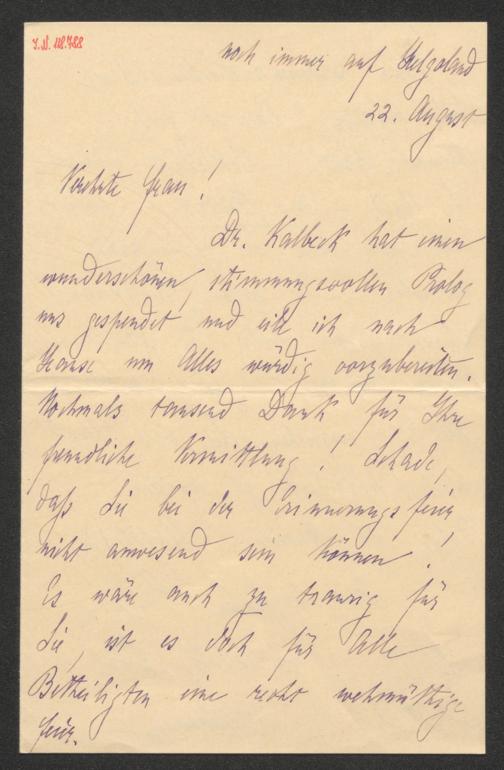 I.N. 118.788
noch immer auf Helgoland
22. August
Verehrte Frau!
Dr. Kalbeck hat einen
wunderschönen, stimmungsvollen Prolog
uns gespendet und eile ich nach
Hause um Alles würdig vorzubereiten.
Nochmals tausend Dank für Ihre
freundliche Vermittlung! Schade,
daß Sie bei der Erinnerungsfeier
nicht anwesend sein können!
Es wäre auch zu traurig für
Sie, ist es doch für Alle
Betheiligten eine recht wehmüthige
Feier.